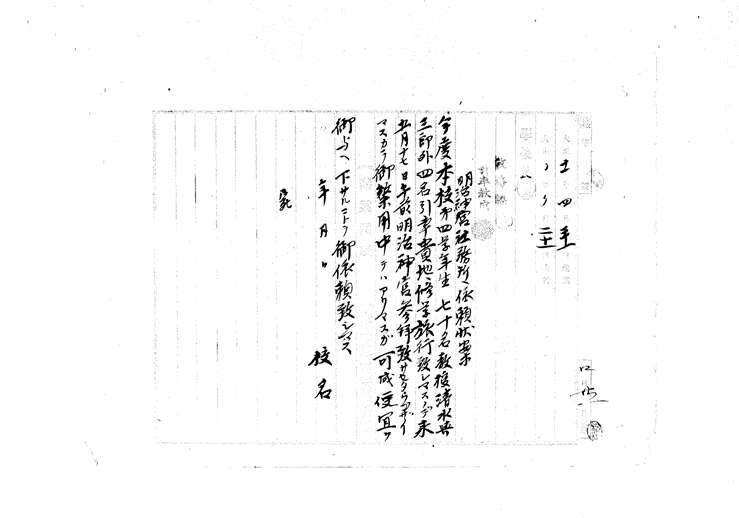 十一 四 五
〃 〃 二十
引率教官
明治神宮社務所ヘ依頼状案
今度本校第四学年生七十名教授清水與
三郎外四名引率貴地ヘ修学旅行致シマスノデ来
五月十七日午前明治神宮参拝致サセタウゴザイ
マスカラ御繁用中デハアリマスガ可成便宜ヲ
御与ヘ下サルコトヲ御依頼致シマス
年 月 日
校名
宛